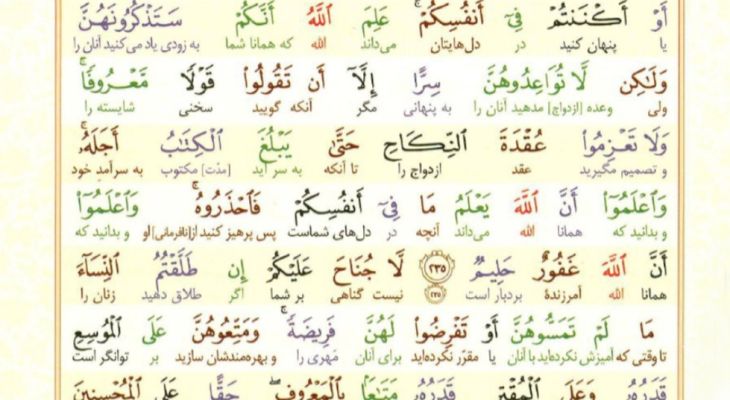 أَوْ أَكْنَنتُمْ فِيٓ أَنفُسِكُمْ ۚ عَلِمَ ٱللَّهُ أَنَّكُمْ سَتَذْكُرُونَهُنَّ
یا پنهان کنید در دل‌هایتان می‌داند الله که همانا شما به زودی یاد می‌کنید آنان را
وَلَٰكِن لَّا تُوَاعِدُوهُنَّ سِرًّا إِلَّآ أَن تَقُولُوا۟ قَوْلًا مَّعْرُوفًا ۚ
ولی وعده [ازدواج] مدهید آنان را به پنهانی مگر آنکه گویید سخنی شایسته را
وَلَا تَعْزِمُوا۟ عُقْدَةَ ٱلنِّكَاحِ حَتَّىٰ يَبْلُغَ ٱلْكِتَٰبُ أَجَلَهُۥ ۚ
و تصمیم مگیرید عقد ازدواج را تا آنکه به سر آید [مدّت] مکتوب به سرآمد خود
وَٱعْلَمُوٓا۟ أَنَّ ٱللَّهَ يَعْلَمُ مَا فِيٓ أَنفُسِكُمْ فَٱحْذَرُوهُ ۚ وَٱعْلَمُوٓا۟
و بدانید که همانا الله می‌داند آنچه در دل‌های شماست پس پرهیز کنید از [نافرمانی] او و بدانید که
أَنَّ ٱللَّهَ غَفُورٌ حَلِيمٌ ﴿٢٣٥﴾ لَّا جُنَاحَ عَلَيْكُمْ إِن طَلَّقْتُمُ ٱلنِّسَآءَ
همانا الله آمرزندهٔ بردبار است ﴿۲۳۵﴾ نیست گناهی بر شما اگر طلاق دهید زنان را
مَا لَمْ تَمَسُّوهُنَّ أَوْ تَفْرِضُوا۟ لَهُنَّ فَرِيضَةً ۚ وَمَتِّعُوهُنَّ عَلَى ٱلْمُوسِعِ
تا وقتی که آمیزش نکرده‌اید با آنان یا مقرّر نکرده‌اید برای آنان مَهری را و بهره‌مندشان سازید بر توانگر است
قَدَرُهُۥ وَعَلَى ٱلْمُقْتِرِ قَدَرُهُۥ مَتَٰعًۢا بِٱلْمَعْرُوفِ ۖ حَقًّا عَلَى ٱلْمُحْسِنِينَ